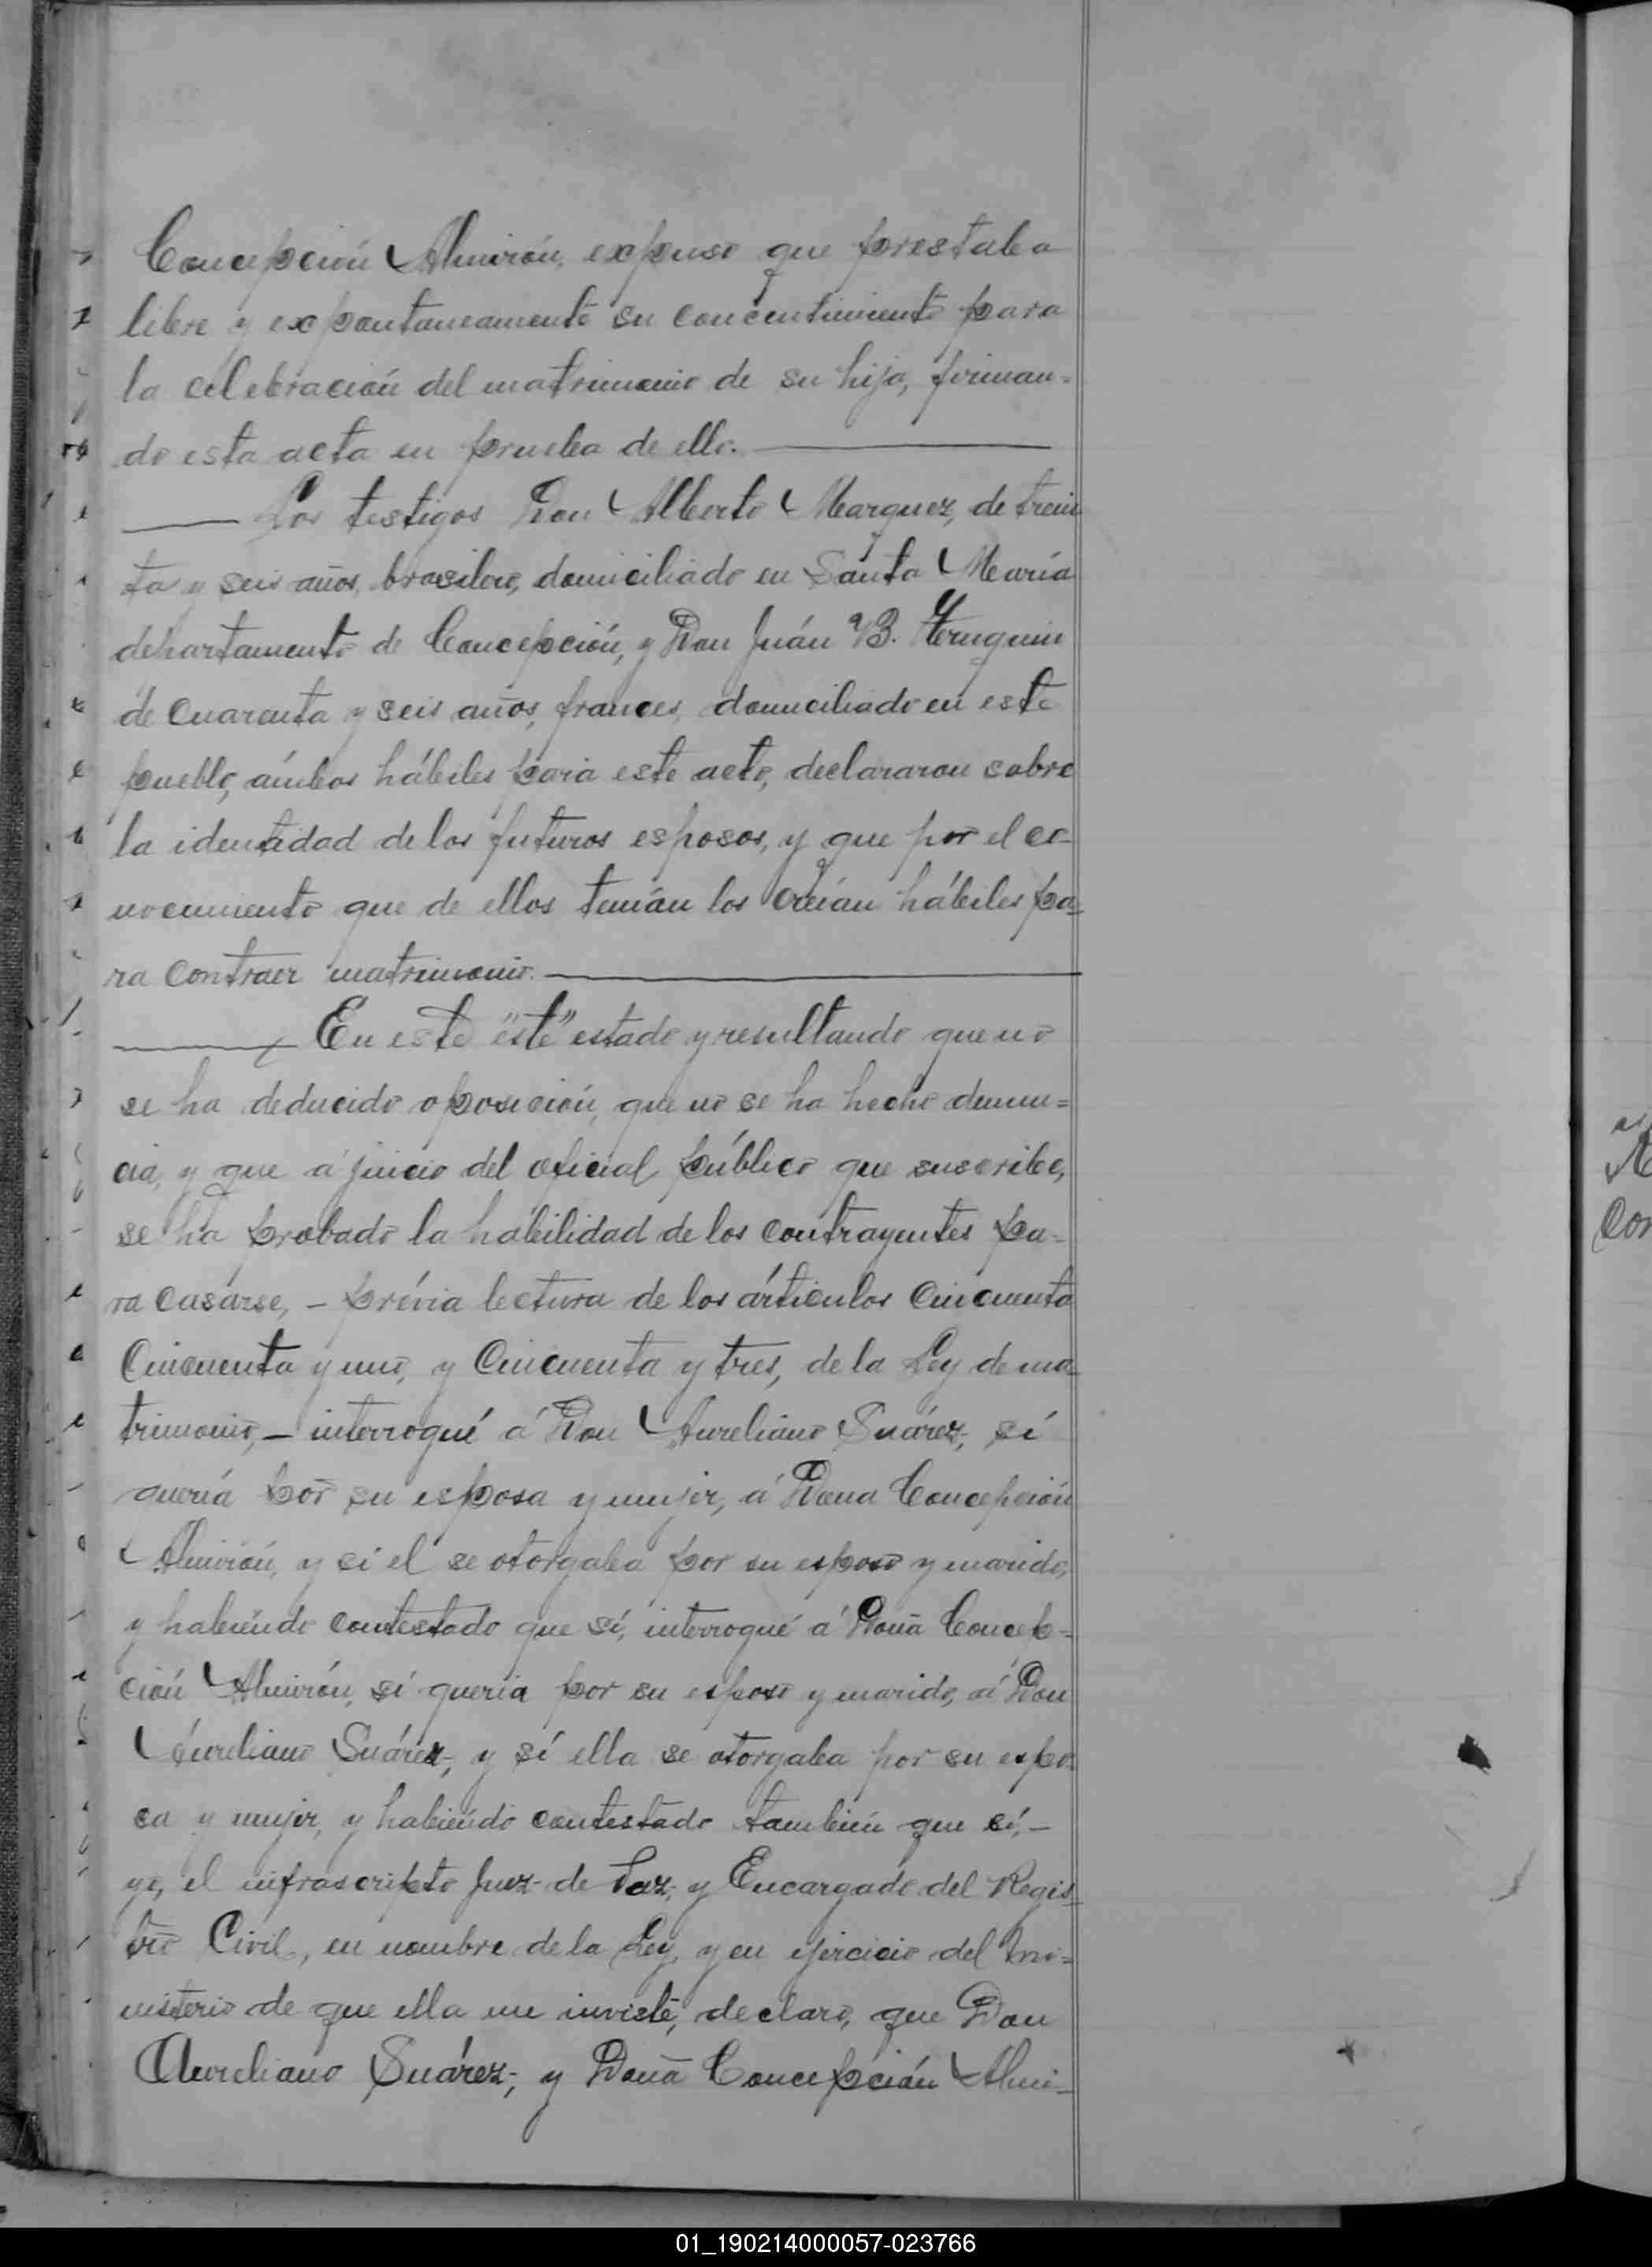 Concepción Almirón, expuso que prestaba
libre y expontaneamente su concentimiento para
la celebración del matrimonio de su hija, firman=
do esta acta en prueba de ello.
Los testigos Don Alberto Marquez, de trein
ta y seis años, brasilero, domiciliado en Santa María
departamento de Concepción, y Don Juán B.
de cuarenta y seis años, frances, domiciliado en este
pueblo, ámbos hábiles para este acto, declararon sobre
la identidad de los futuros esposos, y que por el co-
nocimiento que de ellos tenían los creían hábiles pa-
ra contraer matrimonio.
En este "este" estado y resultando que no
se ha deducido oposición, que no se ha hecho denun=
cia, y que á juicio del oficial público que suscribe,
se ha probado la habilidad de los contrayentes pa-
ra casarse, - prévia lectura de los árticulos cincuenta
cincuenta y uno, y cincuenta y tres, de la Ley de ma-
trimonio, - interrogué á Don Aureliano Suárez, sí
quería por su esposa y mujer, á Doña Concepción
Almirón, y si el se otorgaba por su esposo y marido,
y habiéndo contestado que sí, interrogué á Doña Concep=
ción Almirón, sí quería por su esposo y marido, á Don
Aureliano Suárez, y sí ella se otorgaba por su espo-
sa y mujer, y habiéndo contestado también que sí, -
yo, el infrascripto Juez de Paz, y Encargado del Regis-
tro Civil, en nombre de la Ley, y en ejercicio del mi=
nisterio de que ella me inviste, declaro, que Don
Aureliano Suárez, y Doña Concepción Almi-
Con
01_190214000057-023766